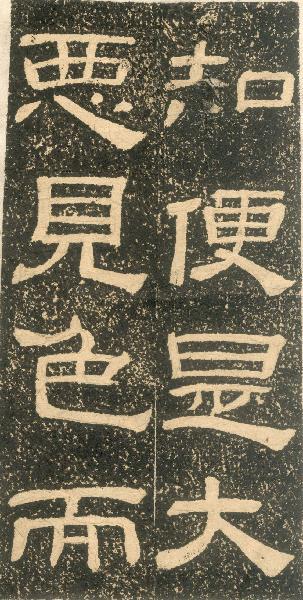 知便是大
惡見色而